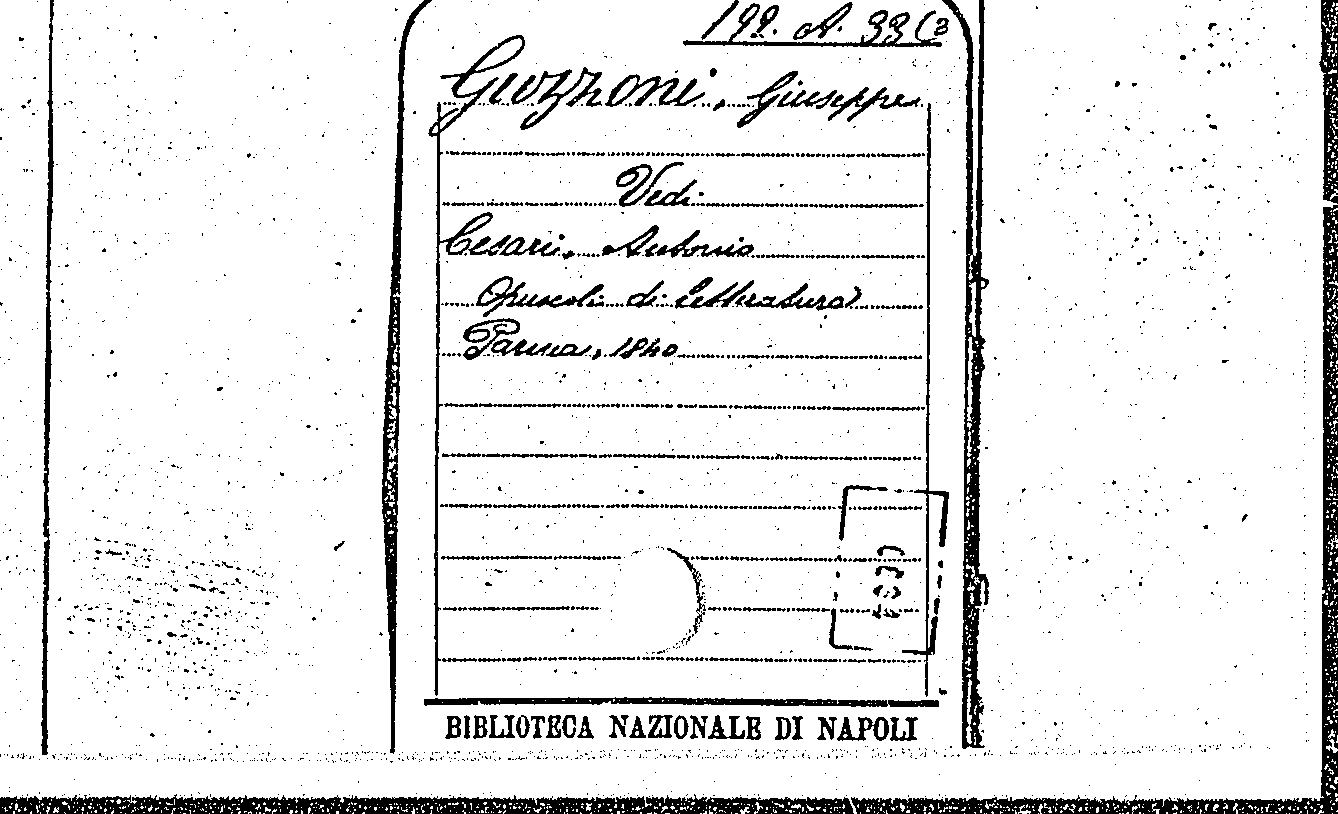 199. A. 33 (3
Guozzoni, Giuseppe
Vedi
Cesari, Antonio
Opuscoli di letteratura
Parma, 1840
BIBLIOTECA NAZIONALE DI NAPOLI